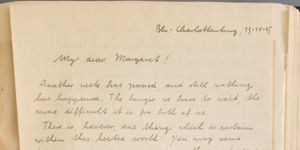 Bln.-Charlottenburg, 13-10-45
My dear Margaret!
Another week has passed, and still nothing
has happened. The longer we have to wait, the
more difficult it is for both of us.
There is, however, one thing which is certain
within this hectic world: You may some